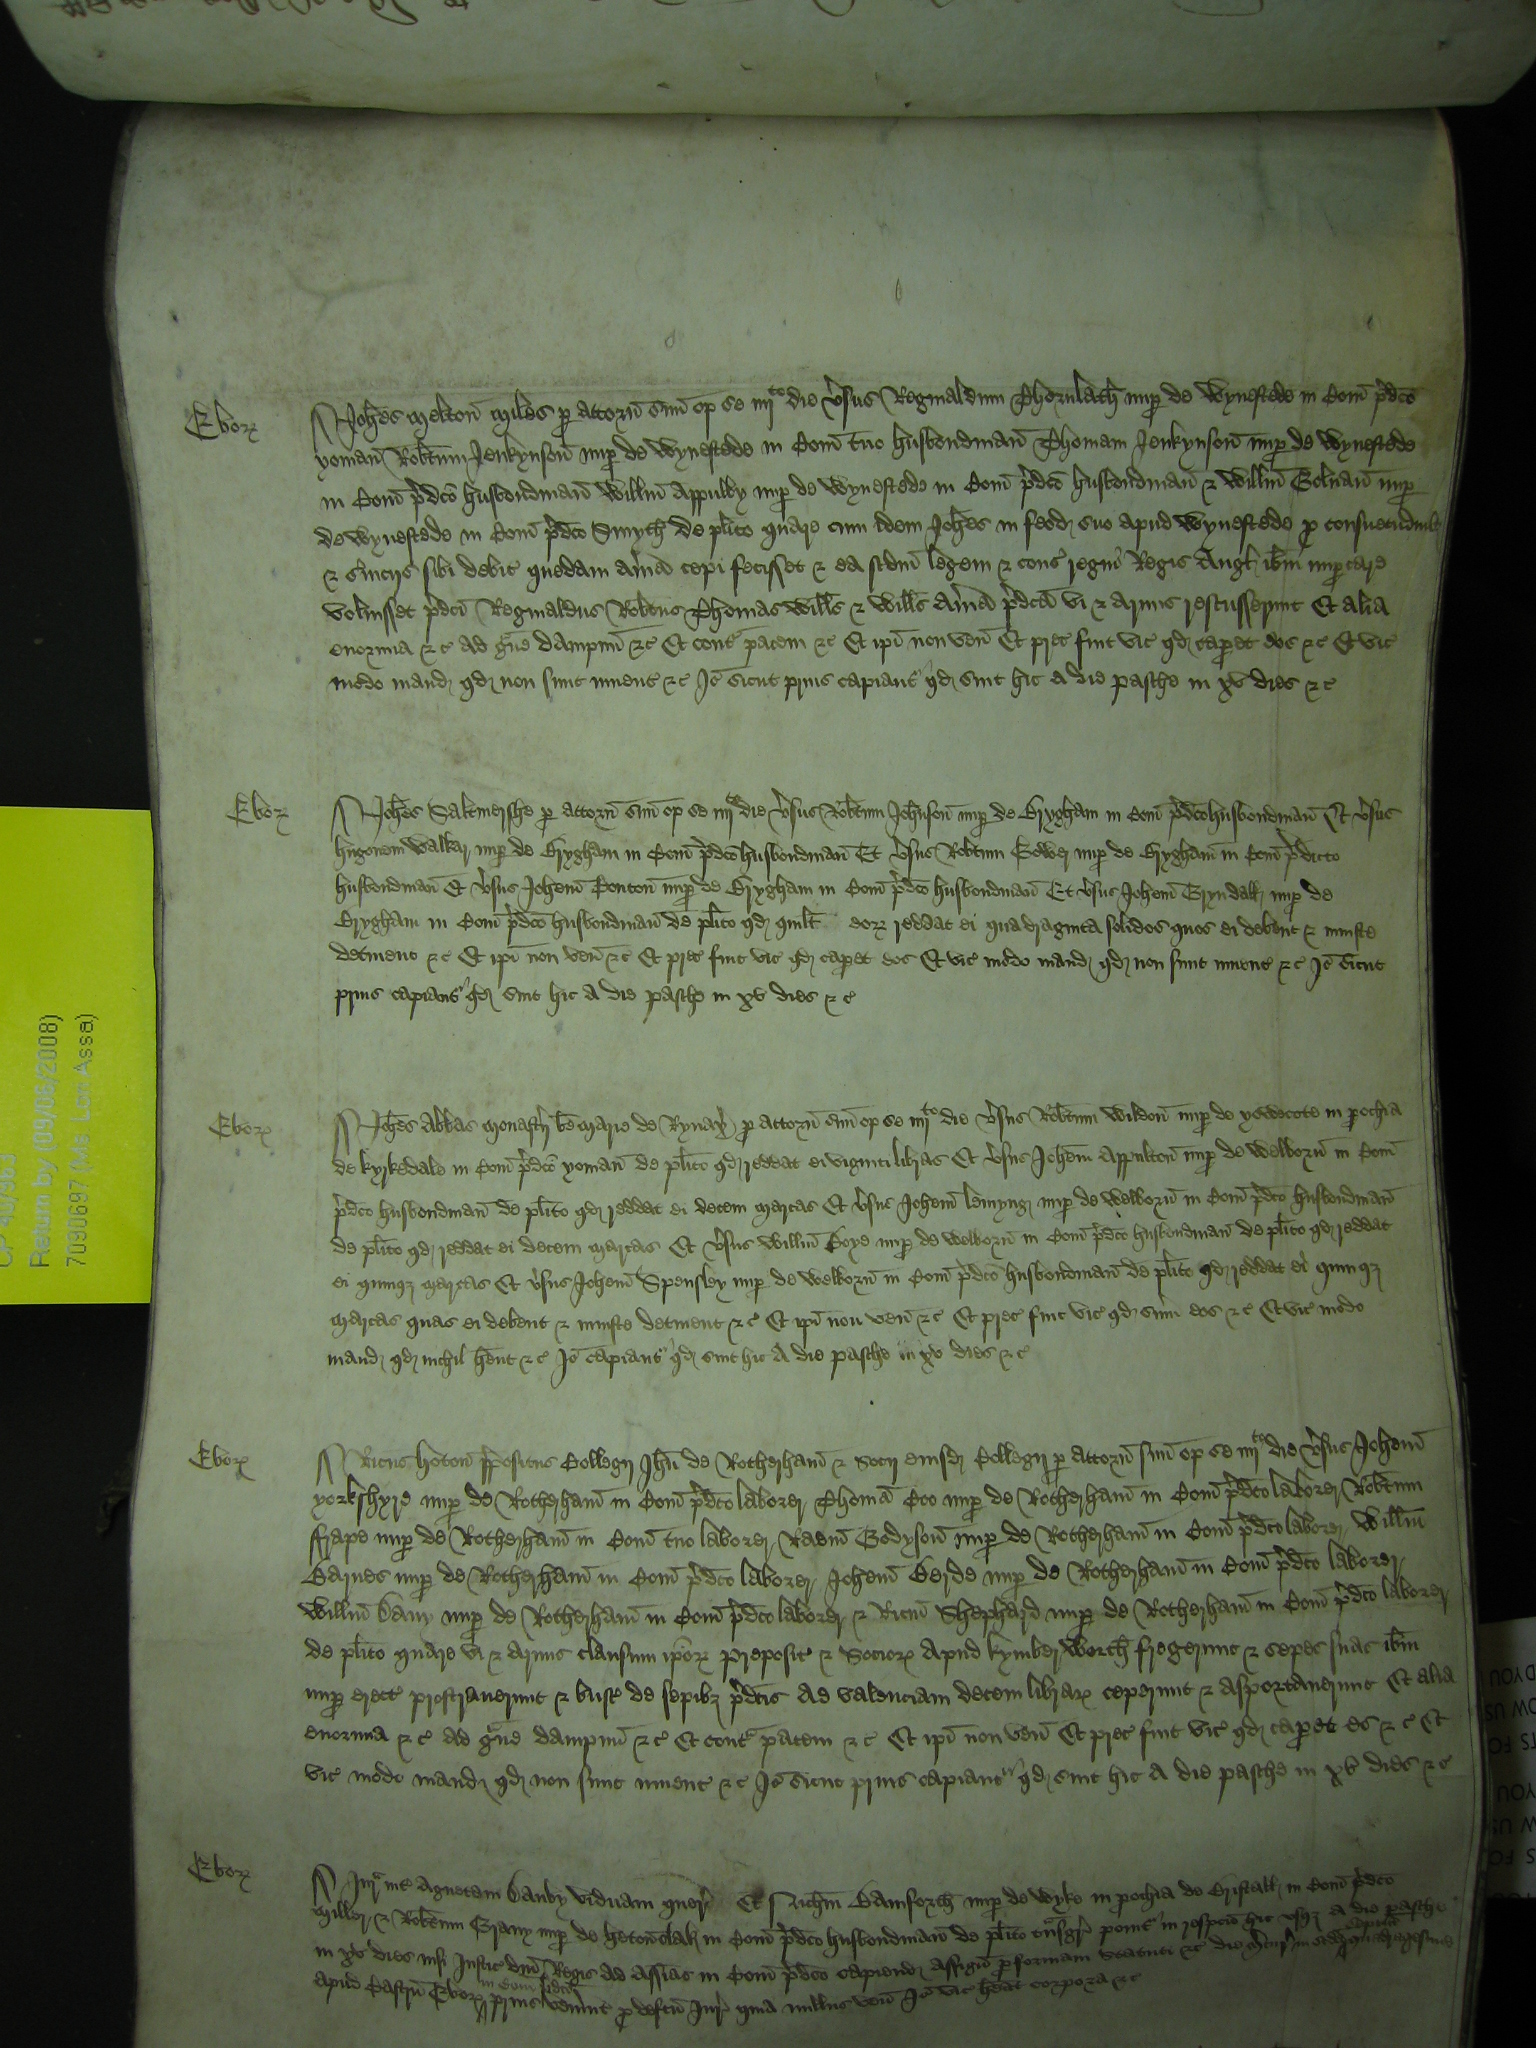 Ebor Joh̄es Melton Miles p attorn̄ suū op se iiijto die v̄sus Reginaldum Thornlach nup de Wynestede in Com̄ p̄dc̄o
yoman Rob̄tum Jenkynson nup de Wynestede in Com̄ tuo husbondman̄ Thomam Jenkynson nup de Wynestede
in Com̄ p̄dc̄o husbondman̄ Will̄m Appulby nup de Wynestede in Com̄ p̄dc̄o husbondman̄ & Will̄m nup
de Wynestede in Com̄ p̄dc̄o Smyth de pl̄ito quare cum idem Joh̄es in feod suo apud Wynestede p consuetudinib
& s̄uicijs sibi debit quedam aūia capi fecisset & ea scdm legem & cons regni Regis Angl ib̄m inpcare
voluisset p̄dc̄i Reginaldus Rob̄tus Thomas Will̄s & Will̄s aūia p̄dc̄a vi & armis rescusserunt Et alia
enormia &c ad gͣue dampnū &c Et contͣ pacem &c Et ip̄i non ven̄ Et prec̄ fuit vic̄ qd capet eos &c Et vic̄
modo mand qd non sunt inuent &c Iō sicut prius capiantr qd sint hic a die pasche in xv dies &c
Ebor Joh̄es Saltmershe p attorn̄ suū op se iiijto die v̄sus Rob̄tum Joh̄nson̄ nup de Brygham in Com̄ p̄dc̄o husbondman̄ Et v̄sus
hugonem Walkar nup de Brygham in Com̄ p̄dc̄o husbondman̄ Et v̄sus Rob̄tum nup de Brygham in Com̄ p̄dicto
husbondman̄ Et v̄sus Joh̄em nup de Brygham in Com̄ p̄dc̄o husbondman̄ Et v̄sus Joh̄em Gryndall nup de
Brygham in Com̄ p̄dc̄o husbondman̄ de pl̄ito qd quilt eor reddat ei quadraginta solidos quos ei debent & iniuste
detinent &c Et ip̄i non ven̄ &c Et prec̄ fuit vic̄ qd capet eos Et vic̄ modo mand qd non sunt inuent &c Iō sicut
prius capiantr qd sint hic a die pasche in xv dies &c
Ebor Joh̄es Abbas Monast̄ij b̄e Marie de p attorn̄ suū op se iiijto die v̄sus Rob̄tum Wildon̄ nup de in pochia
de kyrkedale in Com̄ p̄dc̄o yoman̄ de pl̄ito qd reddat ei viginti libras Et v̄sus Joh̄em Appulton̄ nup de Welborn̄ in Com̄
p̄dc̄o husbondman̄ de pl̄ito qd reddat ei decem marcas Et v̄sus Joh̄em lemyng nup de Welborn̄ in Com̄ p̄dc̄o husbondman̄
de pl̄ito qd reddat ei decem marcas Et v̄sus Will̄m Boye nup de Welborn̄ in Com̄ p̄dc̄o husbondman̄ de pl̄ito qd reddat
ei quinqz marcas Et v̄sus Joh̄em Spensley nup de Welborn̄ in Com̄ p̄dc̄o husbondman̄ de pl̄ito qd reddat ei quinqz
marcas quas ei debent & iniuste detinent &c Et ip̄i non ven̄ &c Et prec̄ fuit vic̄ qd sum̄ eos &c Et vic̄ modo
mand qd nichil h̄ent &c Iō capiantr qd sint hic a die pasche in xv dies &c
Ebor Ric̄us hoton̄ p̄positus Collegij Jh̄u de Rotherham̄ & Socij eiusd Collegij p attorn̄ suū op se iiijto die v̄sus Joh̄em
yorkshyre nup de Rotherham̄ in Com̄ p̄dc̄o laborer Thomā Coo nup de Rotherham̄ in Com̄ p̄dc̄o laborer Rob̄tum
ffrape nup de Rotherham̄ in Com̄ tuo laborer Rad̄m Godyson̄ nup de Rotherham̄ in Com̄ p̄dc̄o laborer Will̄m
Barnes nup de Rotherham̄ in Com̄ p̄dc̄o laborer Joh̄em Berde nup de Rotherham̄ in Com̄ p̄dc̄o laborer
Will̄m Dany nup de Rotherham̄ in Com̄ p̄dc̄o laborer & Ric̄m Shephard nup de Rotherham̄ in Com̄ p̄dc̄o laborer
de pl̄ito quare vi & armis clausum ip̄or prepositi & Socior apud kymberworth fregerunt & sepes suas ib̄m
nup erect prostrauerunt & busc̄ de sepibz p̄dc̄is ad valenciam decem librar ceperunt & asportauerunt Et alia
enormia &c ad gͣue dampnū &c Et contͣ pacem &c Et ip̄i non ven̄ Et prec̄ fuit vic̄ qd capet eos &c Et
vic̄ modo mand qd non sunt inuent &c Iō sicut prius capiantr qd sint hic a die pasche in xv dies &c
Ebor Jur̄ int Agnetem Danby viduam quer̄ Et Ric̄m Bamforth nup de Wyke in pochia de Bristall in Com̄ p̄dc̄o
Miller & Rob̄tum nup de in Com̄ p̄dc̄o husbondman̄ de pl̄ito tͣnsgr̄ ponit in respc̄u hic usqz a die pasche
in xv dies nisi Justic̄ dn̄i Regis ad assīas in Com̄ p̄dc̄o capiend assign̄ p formam statuti &c die
apud Castrū Ebor in Com̄ p̄dc̄o prius ven̄int p defc̄u Jur̄ quia nullus ven̄ Iō vic̄ h̄eat corpora &c
Return by (09/06/2008)